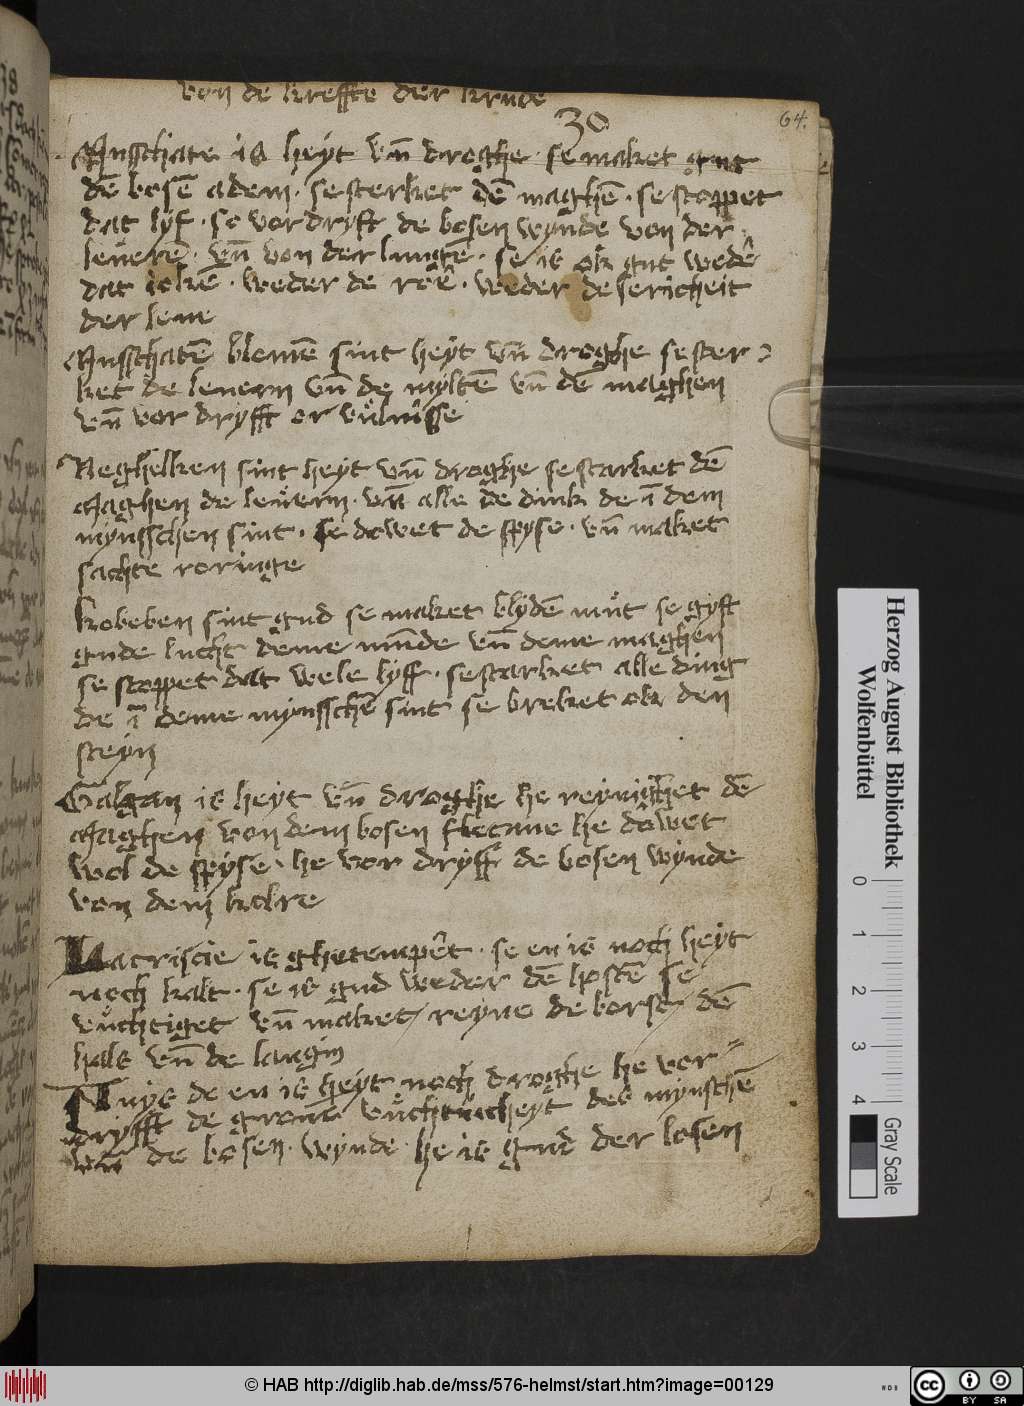 von de kreffte der krude
30
64.
Musschate is heyt vn̄ droghe · se maket gut
dē bosē adem · se sterket dē maghē · se stoppet
dat lyf · se vordryft de bosen wynde von der
leuerē · vn̄ von der lungē · se is ok gut wedē
dat · weder de · weder de sericheit
der leue
Musschatē blomē sint heyt vn̄ droghe se ster
ket de leuern vn̄ de myltē vn̄ dē maghen
vn̄ vor dryfft or vůlnisse
Neghelken sint heyt vn̄ droghe se starket dē
Maghen de leuern · vn̄ alle de dink de ī dem
mynsschen sint · se dowet de spyse · vn̄ maket
sachte roringe
Kobeben sint gud se maket blydē můt se gyft
gude lucht deme mūde vn̄ deme maghen
se stoppet dat wele lyff · se starket alle ding
de ī deme mynsschē sint se breket ok den
steyn
Galgan is heyt vn̄ droghe he reynighet dē
Maghen von dem bosen flecme he dowet
wol de spyse · he vor dryff de bosen wynde
von dem kolre
Lacriscie is ghetempēt · se en is noch heyt
noch kalt · se is gud weder dē hostē se
vůchtiget vn̄ maket reyne de borst dē
hals vn̄ de langin
Anys de en is heyt noch droghe he vor
dryfft de gronē vůchticheyt des mynschē
vn̄ de bosen wynde he is gud der losen
Herzog August Bibliothek
Wolfenbüttel
0
1
2
3
4
Gray Scale
© HAB http://diglib.hab.de/mss/576-helmst/start.htm?image=00129
WDB
cc
BY SA